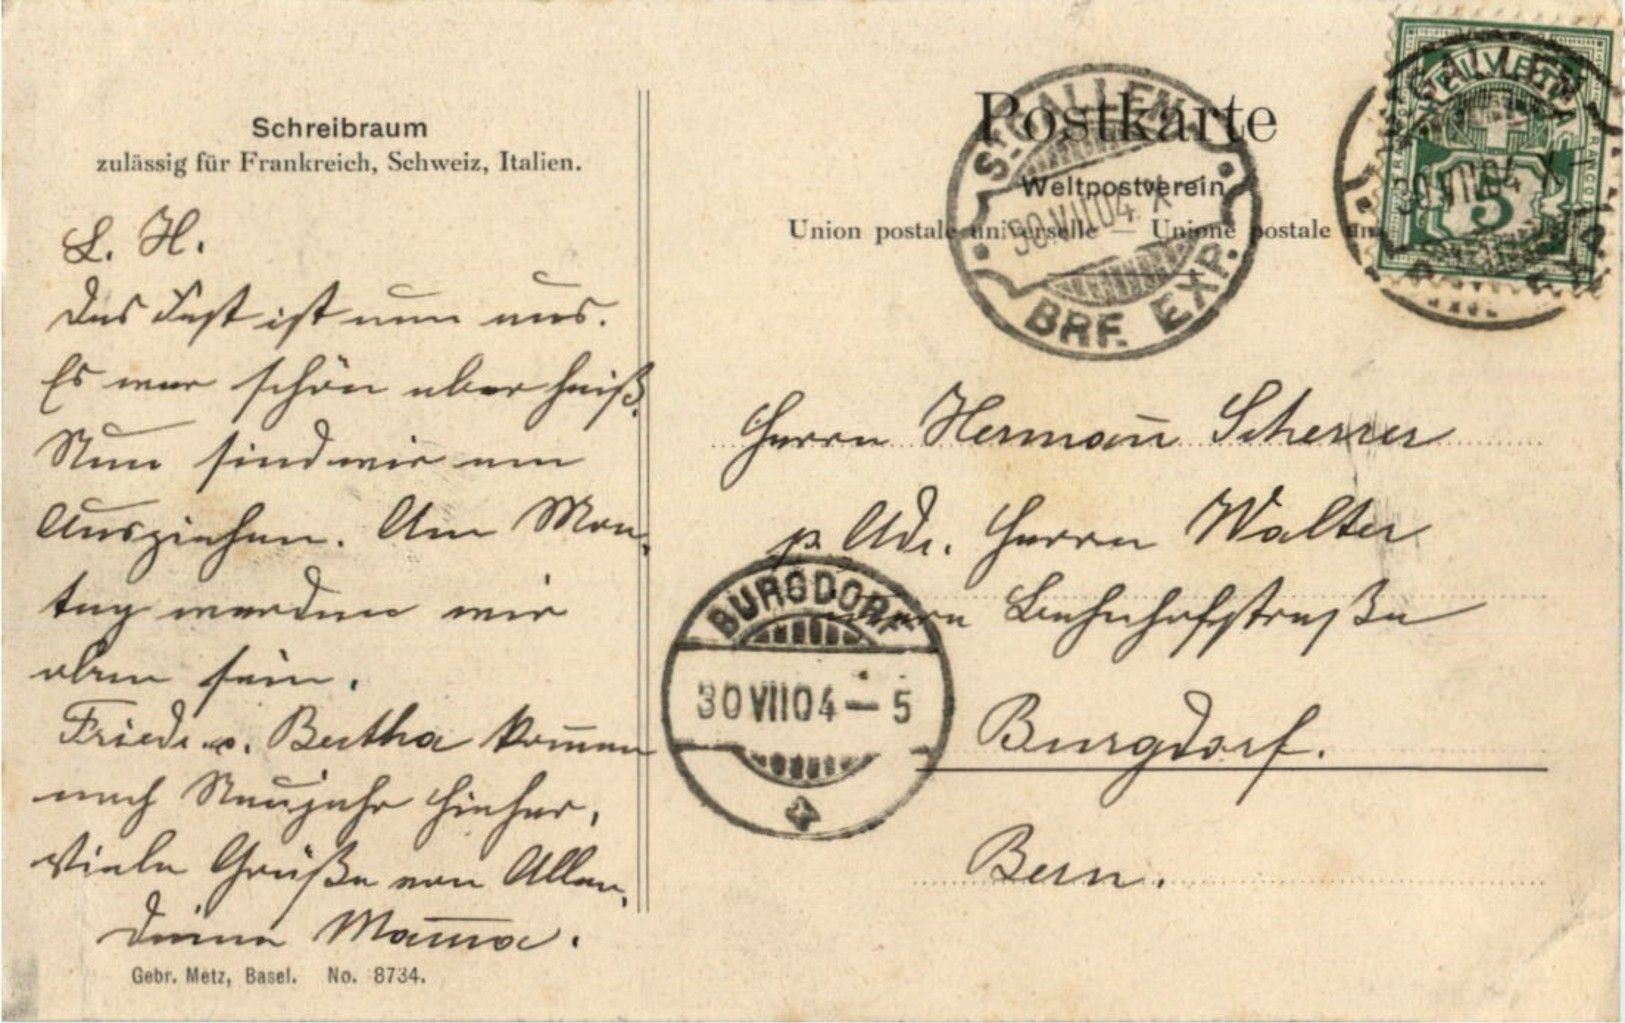 Schreibraum
zulässig für Frankreich, Schweiz, Italien.
L. H.
Das Fest ist nun aus.
Es war schön aber heiß.
Nun sind wir am
Ausziehen. Am Mon-
tag werden wir
oben sein.
Friedr. u. Bertha kom̅en
nach Neujahr hieher.
Viele Grüße von Allen,
Deine Mam̅a.
Gebr. Metz, Basel. No. 8734.
Postkarte
Weltpostverein
Union postale universelle — Unione postale un
ST. GALLEN
30.VII.04. X
BRF. EXP.
HELVETIA
FRANCO
5
ST. GALLEN
30.VII.04. X
BRF. EXP.
Herrn Herman̅ Scherrer
p. Adr. Herrn Walter
Bahnhofstraße
Burgdorf.
Bern.
BURGDORF
30 VII 04 — 5